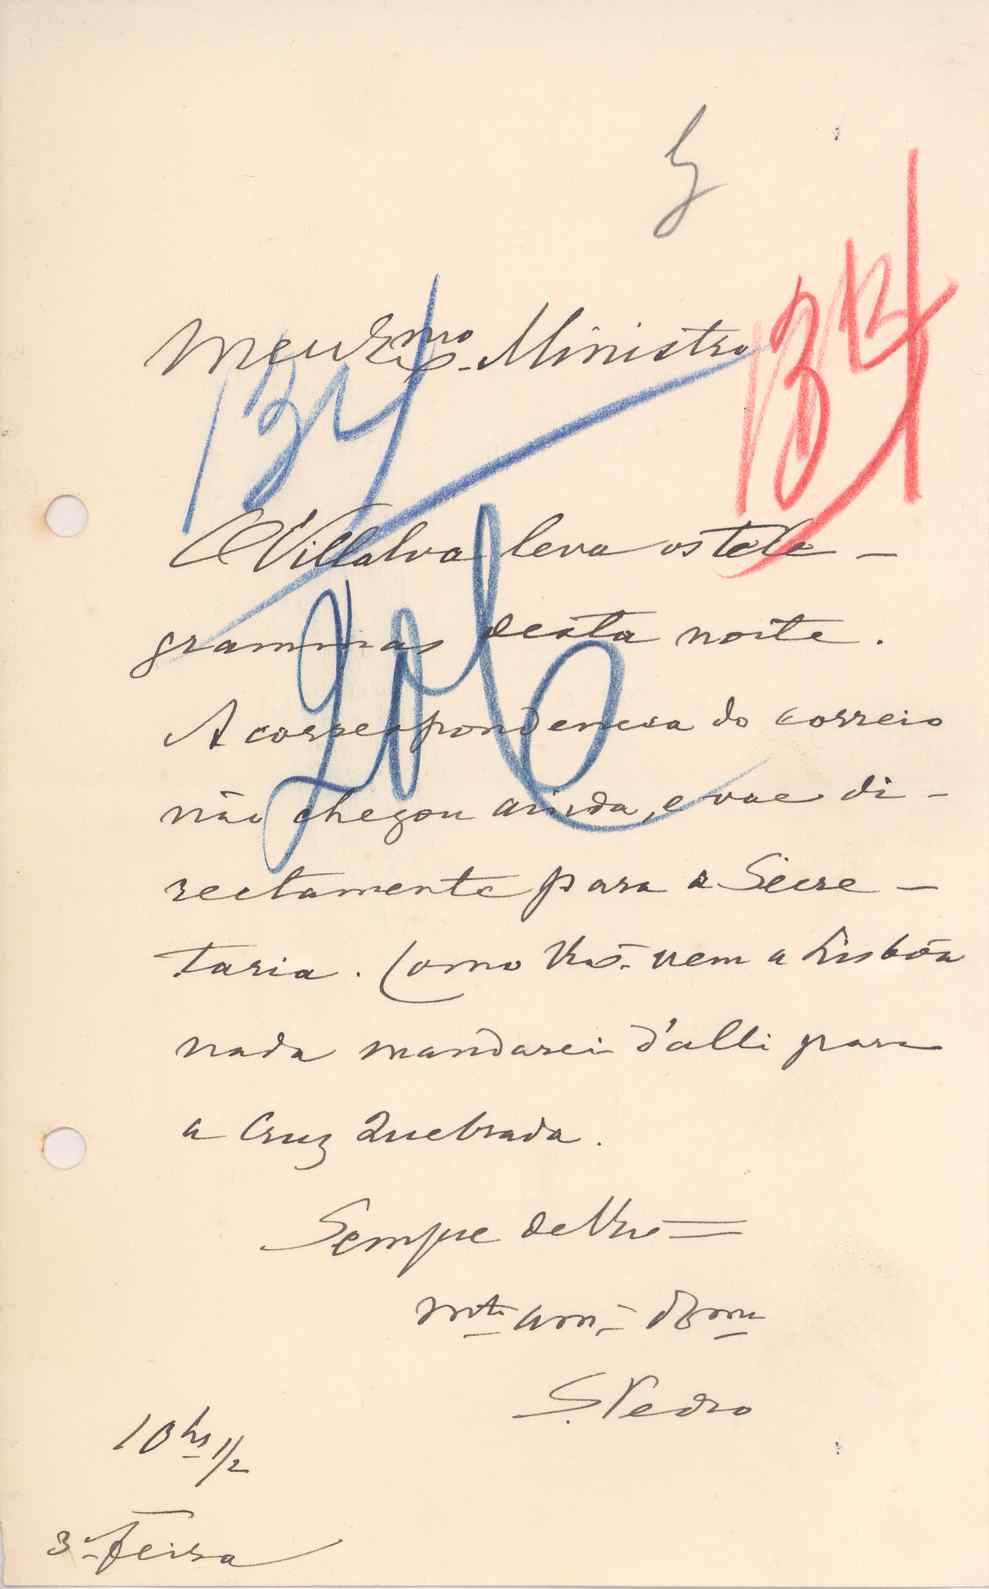 134
134
206
Meu Exmo. Ministro
O Villalva leva os tele-
grammas desta noite.
A correspondencia do correio
não chegou ainda, e vae di-
rectamente para a Secre-
taria. Como V. Exª vem a Lisbôa
nada mandarei d'alli para
a Cruz Quebrada.
Sempre de V. Exª
mto amº
S. Pedro
10 hs 1/2
3ª feira